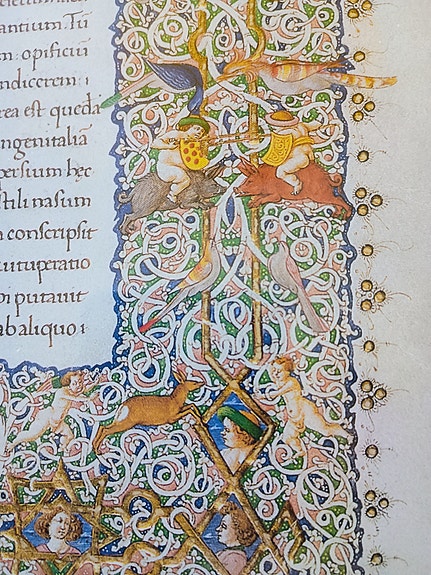 antium. Tū
m: opificiū
ndicerem: i
rea est quedā
ngenitaliā
persium hęc
stili nasum
a conscripsit
uituperatio
putauit
abaliquo i